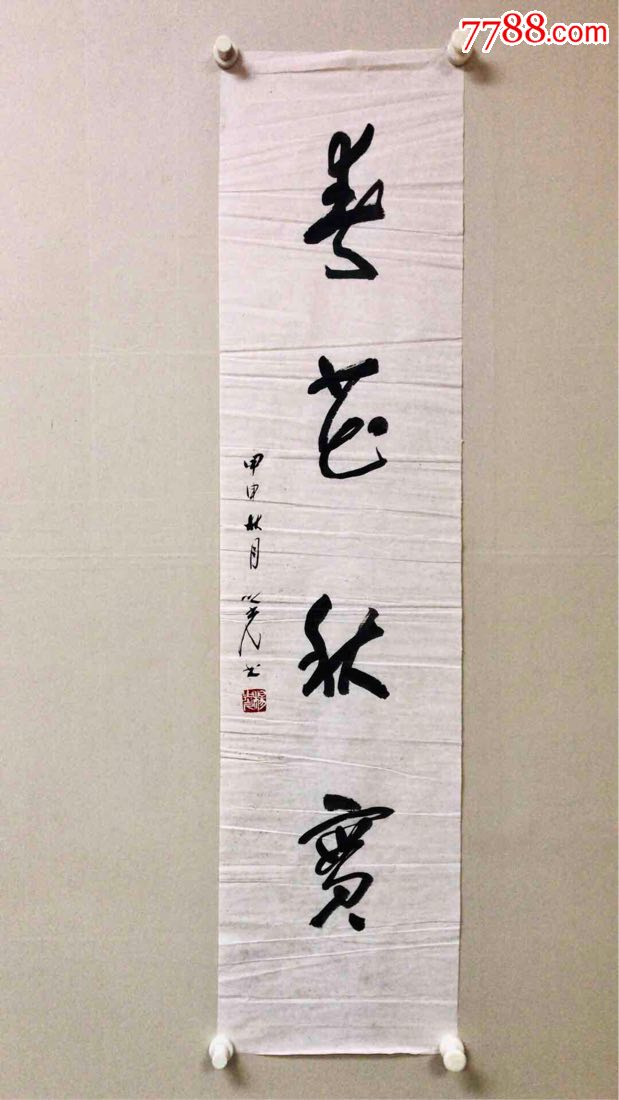 7788.com
春花秋實
甲申秋月
书